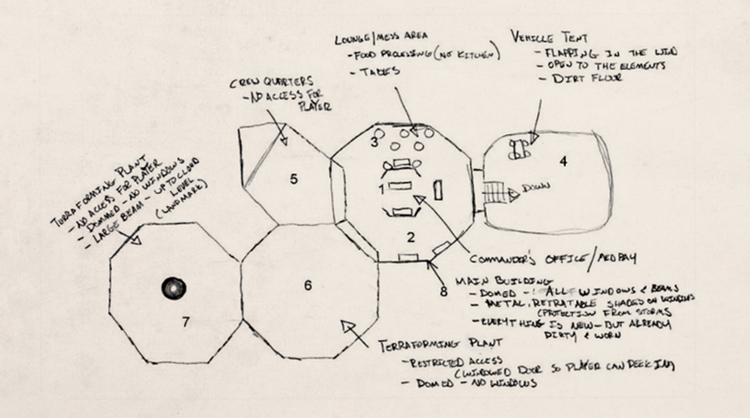 LOUNGE/MESS AREA
- FOOD PROCESSING (NO KITCHEN)
- TABLES
VEHICLE TENT
- FLAPPING IN THE WIND
- OPEN TO THE ELEMENTS
- DIRT FLOOR
CREW QUARTERS
- NO ACCESS FOR
PLAYER
TERRAFORMING PLANT
- NO ACCESS FOR PLAYER
- DOMMED - NO WINDOWS
- LARGE BEAM - UP TO CLOUD
LEVEL
(LANDMARK)
3
4
5
1
DOWN
2
6
7
8
COMMANDER'S OFFICE/MEDBAY
MAIN BUILDING
- DOMED - ALL WINDOWS & BEAMS
- METAL, RETRATABLE SHADES ON WINDOWS
(PROTECTION FROM STORMS
- EVERYTHING IS NEW - BUT ALREADY
DIRTY & WORN
TERRAFORMING PLANT
- RESTRICTED ACCESS
(WINDOWED DOOR SO PLAYER CAN PEEK IN)
- DOMED - NO WINDOWS